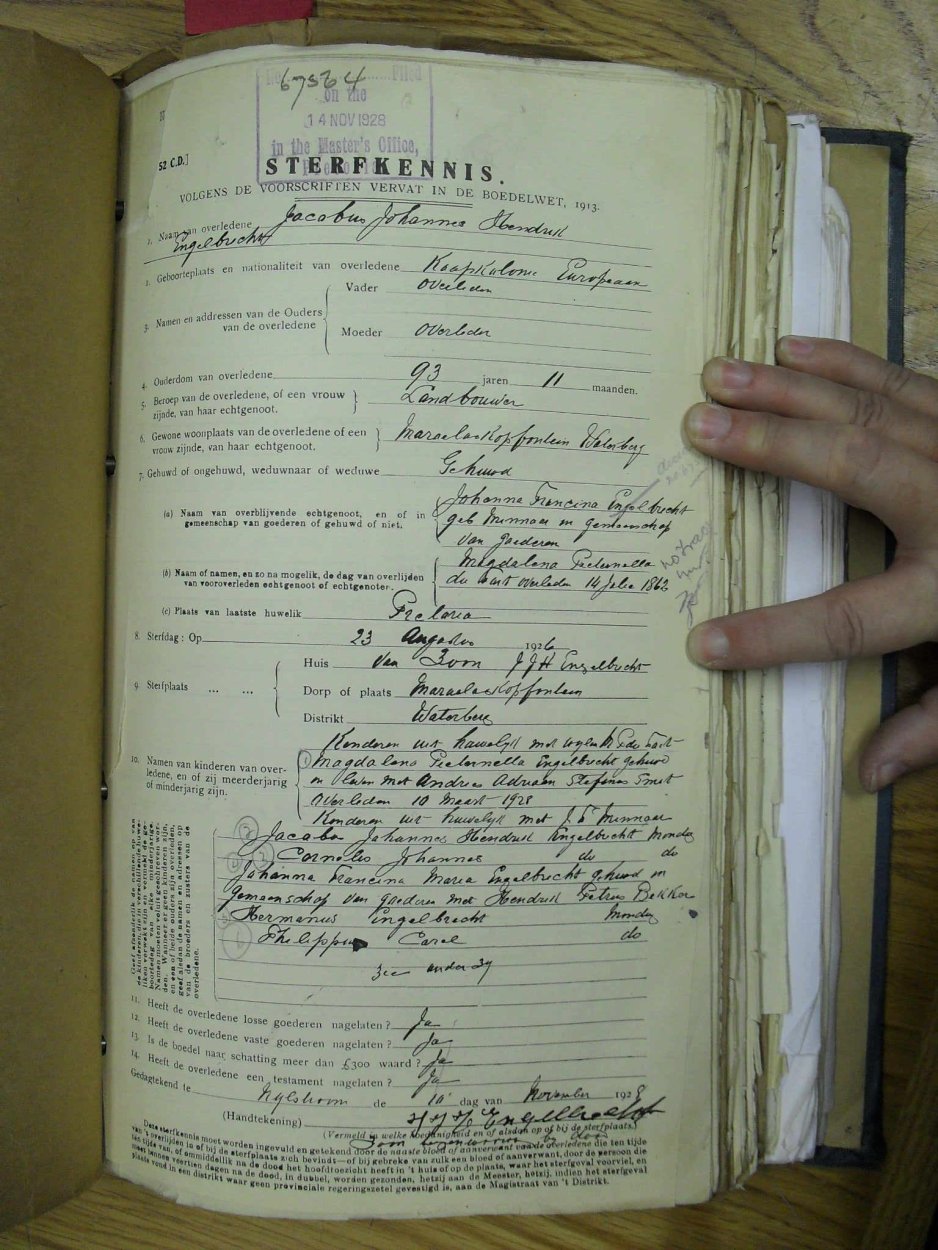 67524
Filed
on the
14 NOV 1928
in the Master's Office,
52 C.D.]
STERFKENNIS.
VOLGENS DE VOORSCHRIFTEN VERVAT IN DE BOEDELWET, 1913.
1. Naam van overledene Jacobus Johannes Hendrik
Engelbrecht
Geboorteplaats en nationaliteit van overledene Kaapkolonie Europeaan
3. Namen en addressen van de Ouders van de overledene
Vader Overleden
Moeder Overleden
4. Ouderdom van overledene 93 jaren 11 maanden.
5. Beroep van de overledene, of een vrouw zijnde, van haar echtgenoot. Landbouwer
6. Gewone woonplaats van de overledene of een vrouw zijnde, van haar echtgenoot. Maraelaskopfontein Waterberg
7. Gehuwd of ongehuwd, weduwnaar of weduwe Gehuwd
(a) Naam van overblijvende echtgenoot, en of in gemeenschap van goederen of gehuwd of niet.
Johanna Francina Engelbrecht
geb Minnaar in gemeenschap
van goederen
(b) Naam of namen, en zo na mogelik, de dag van overlijden van vooroverleden echtgenoot of echtgenoten.
Magdalena Pieternella
du Toit overleden 14 Julie 1862
(c) Plaats van laatste huwelik Pretoria
8. Sterfdag: Op 23 Augustus 1926
9. Sterfplaats ... ...
Huis van Zoon J J H Engelbrecht
Dorp of plaats Maraelaskopfontein
Distrikt Waterberg
10. Namen van kinderen van overledene, en of zij meerderjarig of minderjarig zijn.
Kinderen uit huwelijk met wijlen M P du Toit
(1) Magdalena Pieternella Engelbrecht gehuwd
en leven met Andries Adriaan Stefanus Smit
Overleden 10 Maart 1928
Kinderen uit huwelijk met J. F Minnaar
(2) Jacobus Johannes Hendrik Engelbrecht Mondig
(3) Cornelis Johannes do do
Johanna Francina Maria Engelbrecht gehuwd in
gemeenschap van goederen met Hendrik Petrus Bekker
Hermanus Engelbrecht Mondig
Philippus Carel do
Zie ander zy
11. Heeft de overledene losse goederen nagelaten? Ja
12. Heeft de overledene vaste goederen nagelaten? Ja
13. Is de boedel naar schatting meer dan £300 waard? Ja
14. Heeft de overledene een testament nagelaten? Ja
Gedagtekend te Nylstroom de 10 dag van November 1928
(Handtekening) J J H Engelbrecht
(Vermeld in welke hoedanigheid en of alsdan op of bij de sterfplaats.)
Deze sterfkennis moet worden ingevuld en getekend door de naaste bloed of aanverwant van de overledene die ten tijde
van 't overlijden in of bij de sterfplaats zich bevindt—of bij gebreke van zulk een bloed of aanverwant, door de persoon die
ten tijde van, of onmiddellik na de dood het hoofdtoezicht heeft in 't huis of op de plaats, waar het sterfgeval voorviel, en
moet binnen veertien dagen na de dood, in dubbel, worden gezonden, hetzij aan de Meester, hetzij, indien het sterfgeval
plaats vond in een distrikt waar geen provinciale regeringszetel gevestigd is, aan de Magistraat van 't Distrikt.